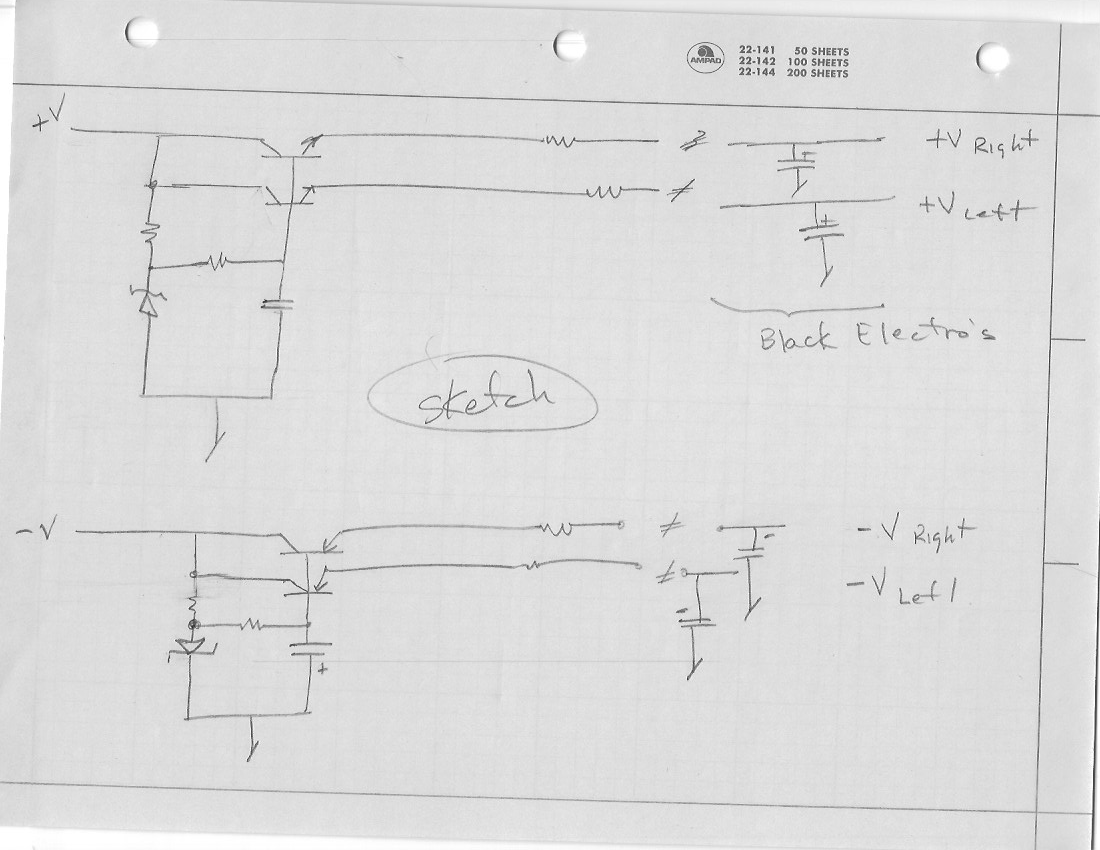 AMPAD
22-141 50 SHEETS
22-142 100 SHEETS
22-144 200 SHEETS
+V
+
+V Right
+
+V Left
Black Electro's
sketch
-V
-
-V Right
-
-V Left
+